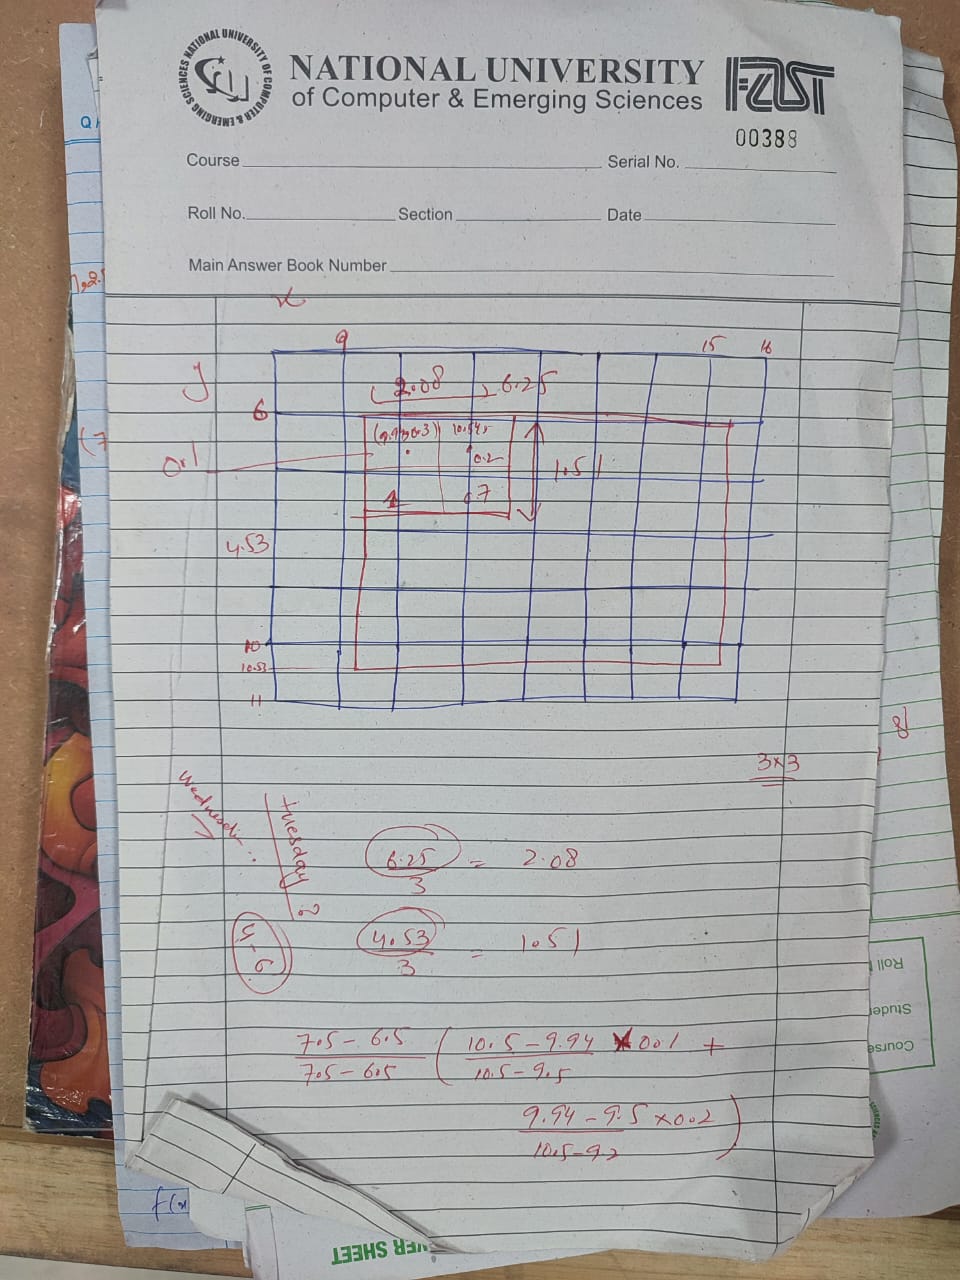 NATIONAL UNIVERSITY OF COMPUTER & EMERGING SCIENCES
NATIONAL UNIVERSITY
of Computer & Emerging Sciences
FAST
00388
Course
Serial No.
Roll No.
Section
Date
Main Answer Book Number
x
9
15
16
y
2.08
6.25
6
10.545
0.1
0.2
1.51
1
0.7
4.53
10
10.53
11
3x3
Tuesday
6.25/3 = 2.08
5-6
4.53/3 = 1.51
7.5 - 6.5 / 7.5 - 6.5 ( 10.5 - 9.94 / 10.5 - 9.5 x 0.1 +
9.94 - 9.5 x 0.2 )
8
Roll
Studen
Course
f(x
ER SHEET